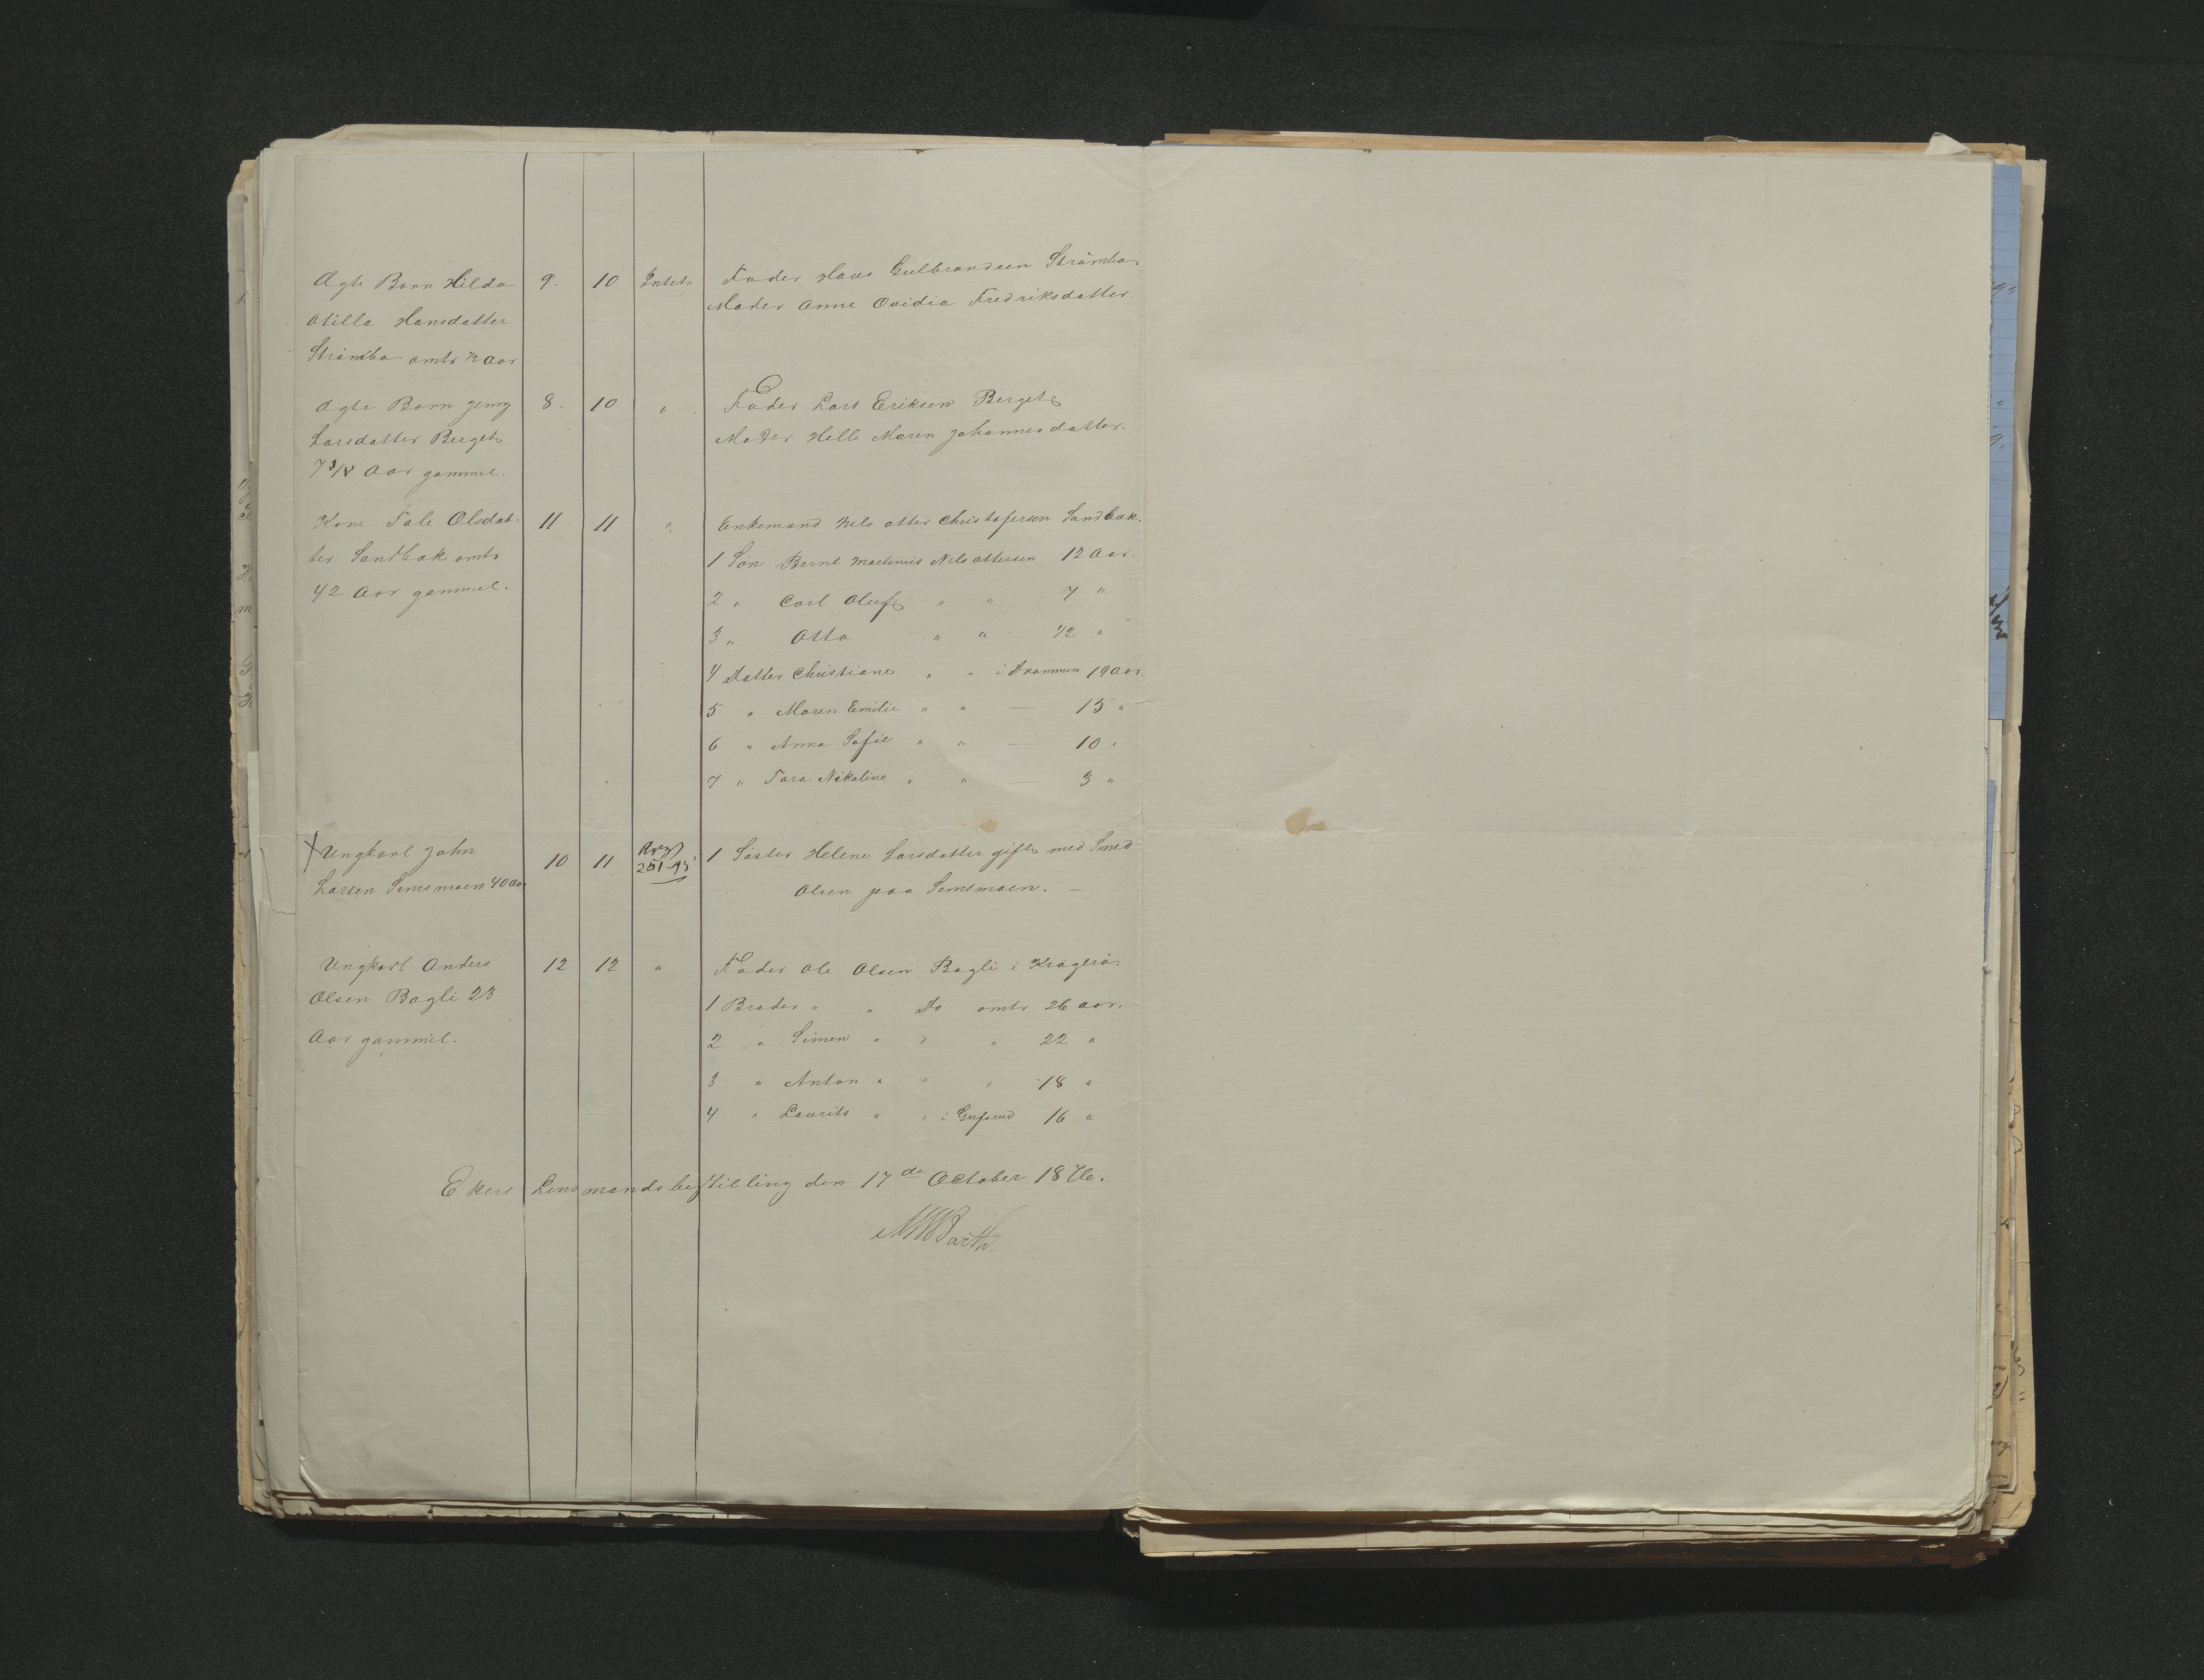 Ægte Barn Hilda 9. 10 Intet. Fader Hans Gulbrandsen Strømbo.
Otilla Hansdatter Moder Anne Ovidia Fredriksdatter.
Strømbo omtr ½ Aar
Ægte Barn Jenny 8. 10 " Fader Lars Eriksen Berget
Larsdatter Berget Moder Helle Maren Johannesdatter.
7 3/4 Aar gammel.
Kone Tale Olsdat- 11 11 " Enkemand Nils Otter Christofersen Sandbak.
ter Sandbak omtr 1 Søn Bernt Martinius Nils Ottersen 12 Aar.
42 Aar gammel. 2 " Carl Oluf " " 7 "
3 " Otto " " ½ "
4 Datter Christiane " " i Drammen 19 Aar
5 " Maren Emilie " " — 15 "
6 " Anna Sofie " " — 10 "
7 " Tara Nikoline " " — 3 "
Ungkarl John 10 11 1 Søster Helene Larsdatter gift med Smed
Larsen Semsmoen 40 Aar Olsen paa Semsmoen. —
Ungkarl Anders 12 12 " Fader Ole Olsen Bagli i Kragerø.
Olsen Bagli 23 1 Broder " " Do omtr 26 Aar.
Aar gammel. 2 " Simen " " " 22 "
3 " Anton " " " 18 "
4 " Laurits " " i 16 "
Ekers Lensmandsbestilling den 17de October 1876.
MWBarth